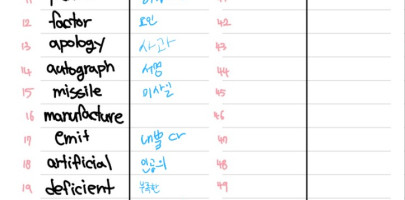 12 factor 요인 42
13 apology 사과 43
14 autograph 서명 44
15 missile 미사일 45
16 manufacture 46
17 emit 내뿜다 47
18 artificial 인공의 48
19 deficient 부족한 49